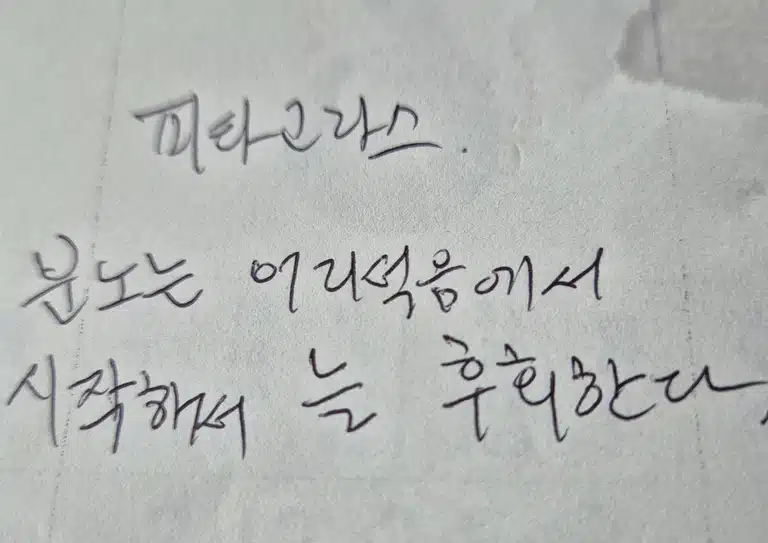 피타고라스.
분노는 어리석음에서
시작해서 늘 후회한다,